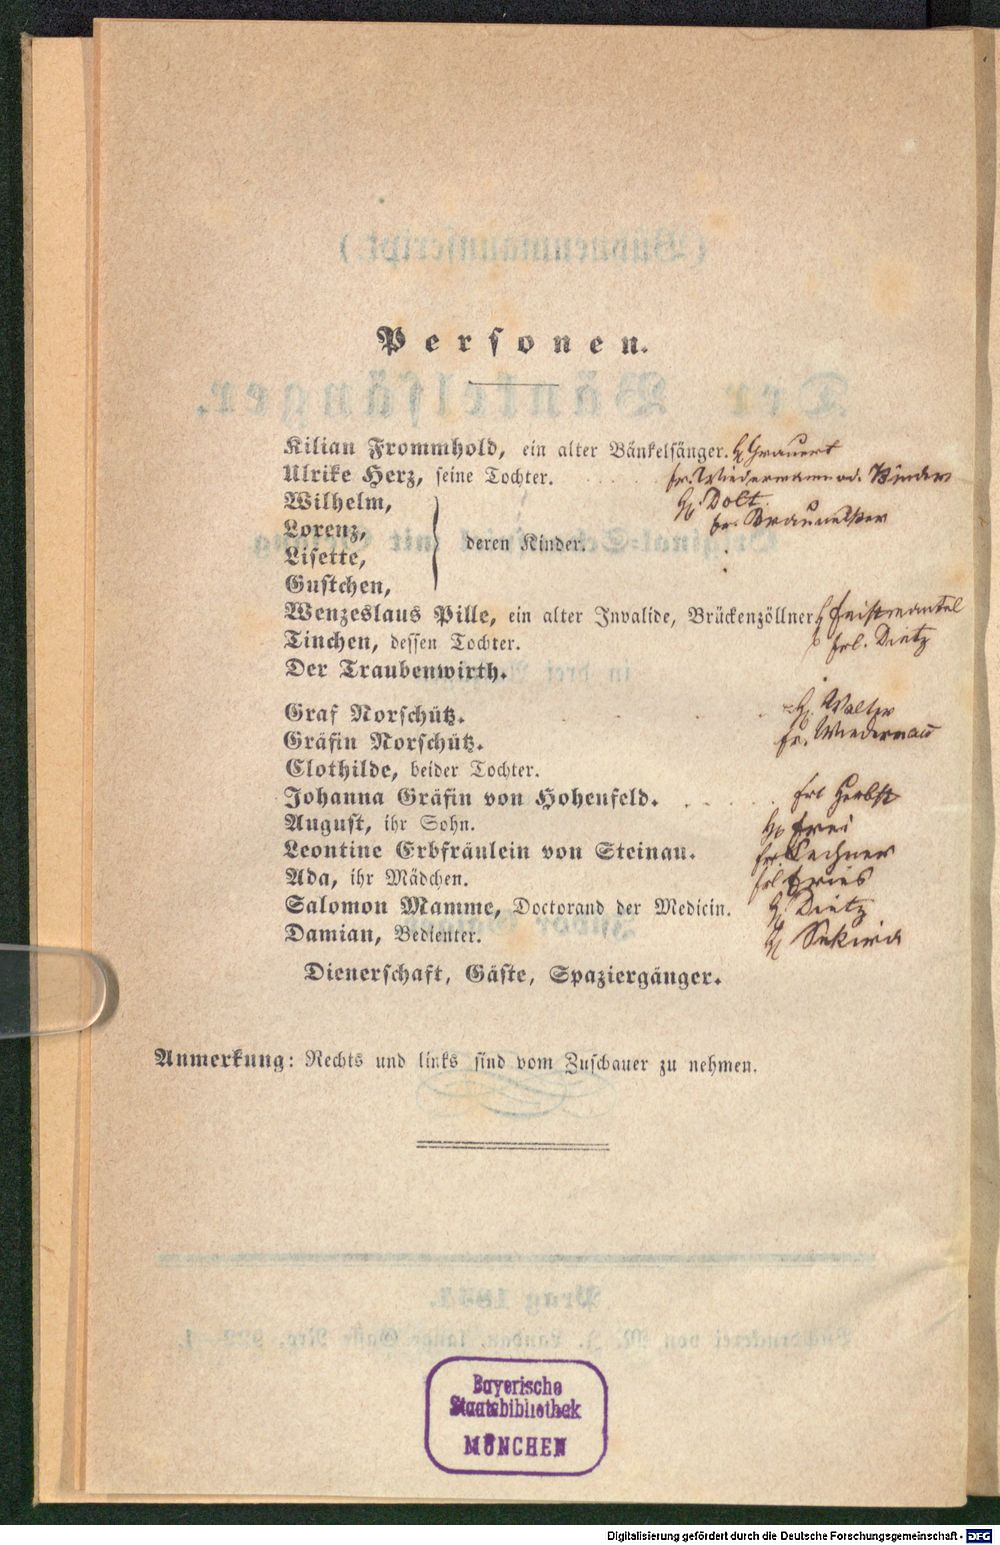 Personen.
Kilian Frommhold, ein alter Bänkelsänger. H. Grauert
Ulrike Herz, seine Tochter. fr. Wiedermann od. Binder
Wilhelm, H. Dolt.
Lorenz, fr.
deren Kinder.
Lisette,
Gustchen,
Wenzeslaus Pille, ein alter Invalide, Brückenzöllner. H. Feistmantel
Tinchen, dessen Tochter. frl. Dietz
Der Traubenwirth.
Graf Norschütz. H. Walter
Gräfin Norschütz. fr. Wiederman̄
Clothilde, beider Tochter.
Johanna Gräfin von Hohenfeld. frl Herbst
August, ihr Sohn. H. Frei
Leontine Erbfräulein von Steinau. fr. Lechner
Ada, ihr Mädchen. frl. Fries
Salomon Mamme, Doctorand der Medicin. H. Dietz
Damian, Bedienter. H.
Dienerschaft, Gäste, Spaziergänger.
Anmerkung: Rechts und links sind vom Zuschauer zu nehmen.
Bayerische
Staatsbibliothek
MÜNCHEN
Digitalisierung gefördert durch die Deutsche Forschungsgemeinschaft - DFG